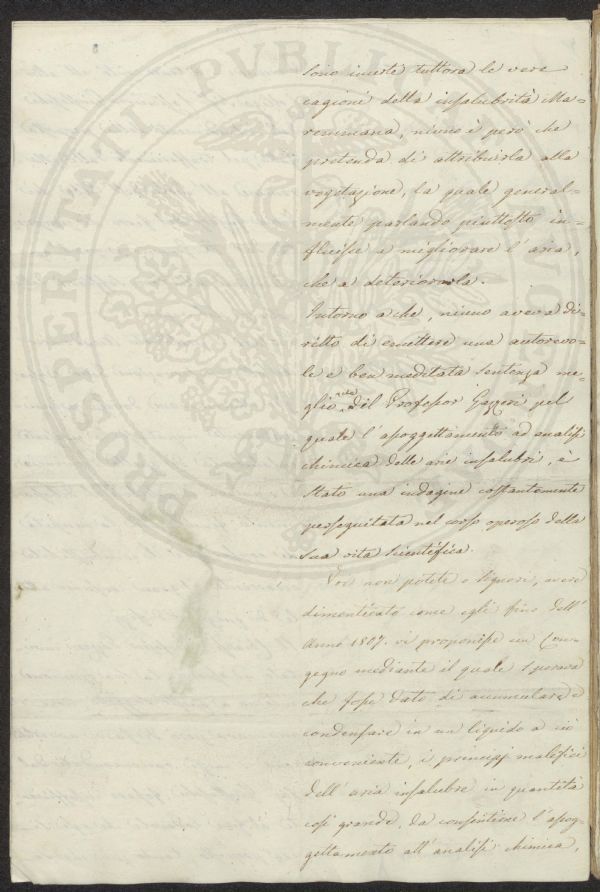 8
PROSPERITATI PVBLICAE AVGENDAE
Sono incerte tuttora le vere
cagioni della insalubrità Ma=
remmana, niuno è però che
pretenda di attribuirla alla
vegetazione, la quale general=
mente parlando piuttosto in=
fluisce a migliorare l'aria,
che a deteriorarla.
Intorno a che, niuno aveva di=
ritto di emettere una autorevo=
le e ben meditata sentenza me=
glio che del Professor Gazzeri, pel
quale l'assoggettamento ad analisi
chimica delle arie insalubri, è
stato una indagine costantemente
perseguitata nel corso operoso della
sua vita scientifica.
Voi non potete o Signori, avere
dimenticato come egli fino dell'
Anno 1807. vi proponesse un Con=
gegno mediante il quale sperava
che fosse dato di accumulare e
condensare in un liquido a ciò
conveniente, i principj malefici
dell'aria insalubre in quantità
così grande, da consentirne l'assog=
gettamento all'analisi chimica,